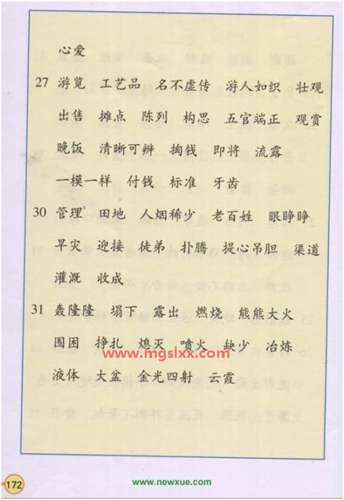 心爱
27 游览 工艺品 名不虚传 游人如织 壮观
出售 摊点 陈列 构思 五官端正 观赏
晚饭 清晰可辨 掏钱 即将 流露
一模一样 付钱 标准 牙齿
30 管理 田地 人烟稀少 老百姓 眼睁睁
旱灾 迎接 徒弟 扑腾 提心吊胆 渠道
灌溉 收成
31 轰隆隆 塌下 露出 燃烧 熊熊大火
围困 挣扎 熄灭 喷火 缺少 冶炼
www.mgslxx.com
液体 大盆 金光四射 云霞
172
www.newxue.com